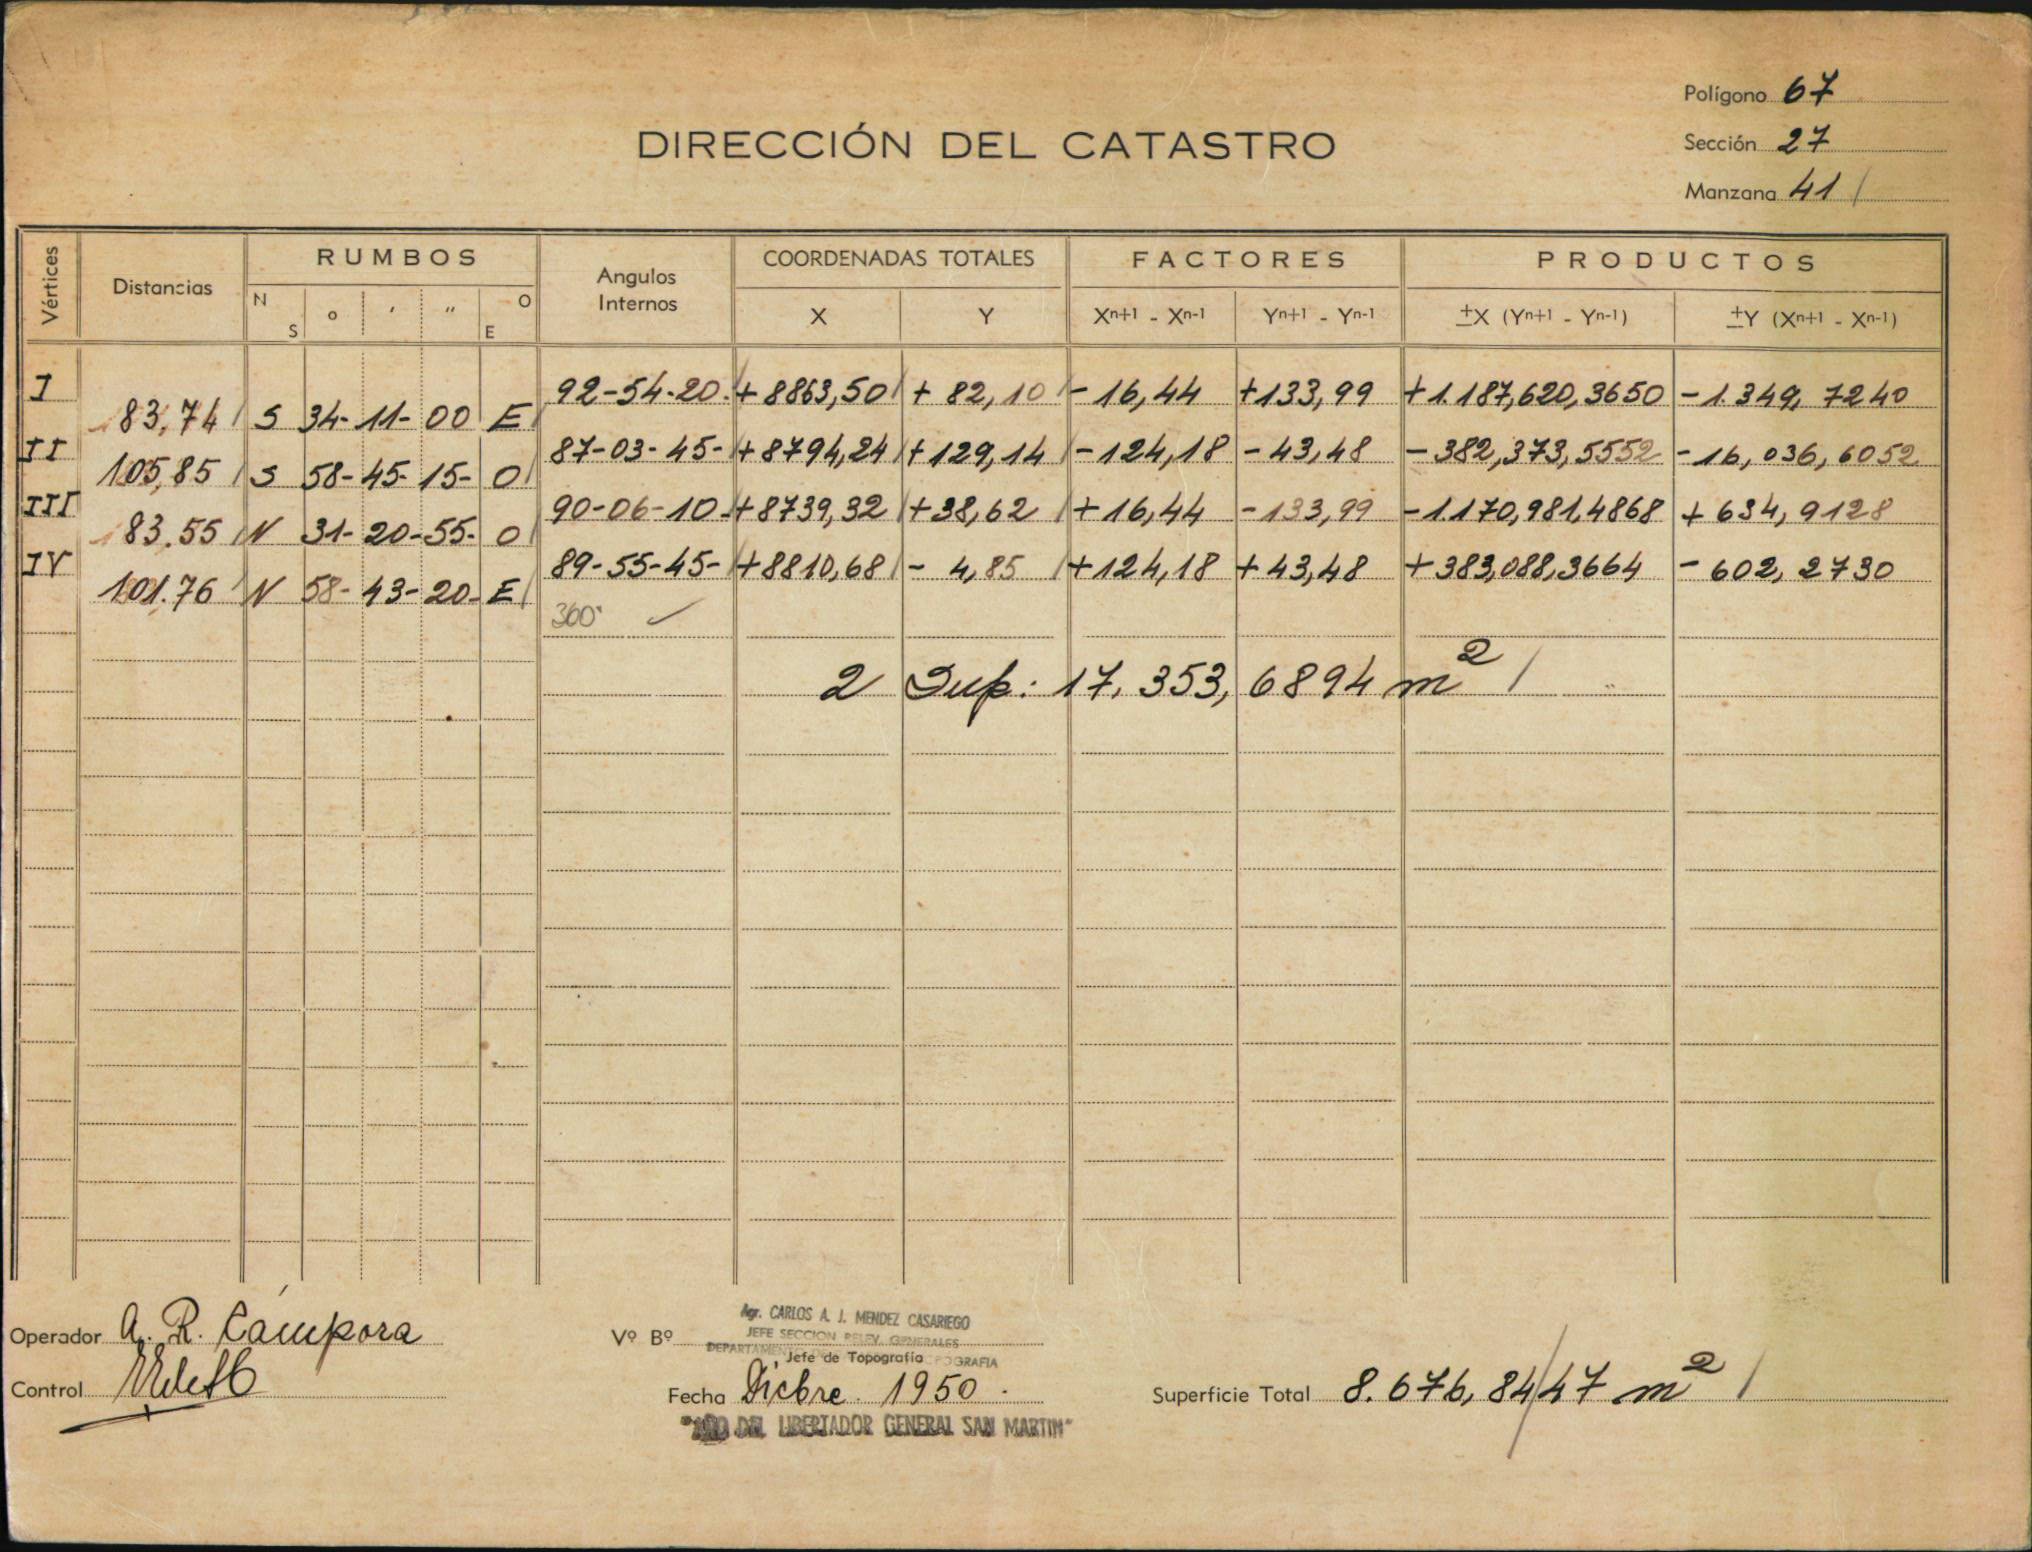 Polígono 67
DIRECCIÓN DEL CATASTRO
Sección 27
Manzana 41 /
Vértices Distancias RUMBOS Angulos Internos COORDENADAS TOTALES FACTORES PRODUCTOS
N S o ' " O E X Y Xn+1 - Xn-1 Yn+1 - Yn-1 ±X (Yn+1 - Yn-1) ±Y (Xn+1 - Xn-1)
I 92-54-20. +8863,50 / + 82,10 / -16,44 +133,99 +1.187,620,3650 -1.349, 7240
83,74 / S 34-11-00 E /
II 87-03-45- +8794,24 / +129,14 / -124,18 -43,48 -382,373,5552 -16,036,6052
105,85 / S 58-45-15- O /
III 90-06-10. +8739,32 / +38,62 / +16,44 -133,99 -1.170,981,4868 +634,9128
83.55 / N 31-20-55- O /
IV 89-55-45- +8810,68 / - 4,85 / +124,18 +43,48 +383,088,3664 -602,2730
101.76 / N 58-43-20- E /
360° ✓
2 Sup: 17.353,6894 m2 /
Operador A. R. Cámpora
Control
Vº Bº
Agr. CARLOS A. J. MENDEZ CASARIEGO
JEFE SECCION RELEV. GENERALES
Jefe de Topografía
Fecha Dicbre. 1950.
"AÑO DEL LIBERTADOR GENERAL SAN MARTIN"
Superficie Total 8.676,84/47 m2 /